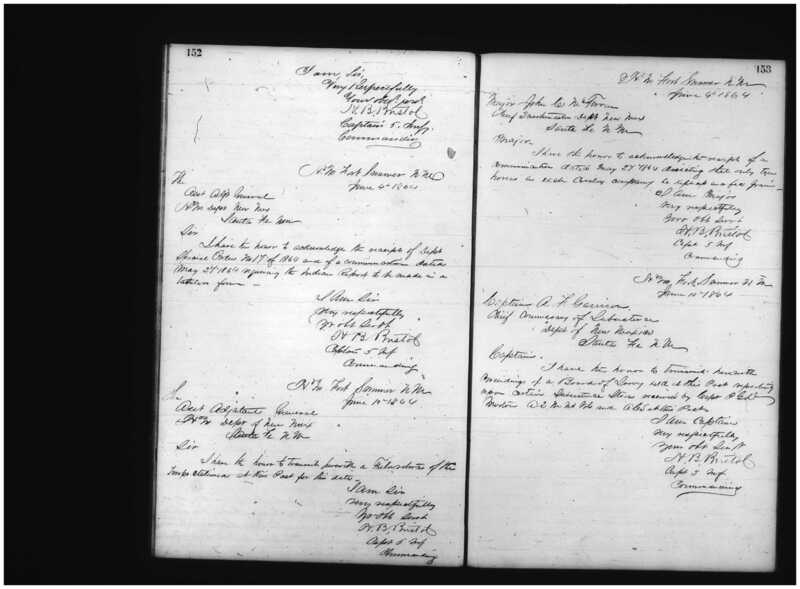 152
I am, Sir,
Very Respectfully
Your obt servt
H. B. Bristol
Captain 5. Infy.
Commanding
Hd Qrs Fort Sumner N Mex
June 4th 1864
The
Asst Adjt General
Hd Qrs Dept New Mex
Santa Fe N M
Sir
I have the honor to acknowledge the receipt of Dept
Special Orders No 17 of 1864 and of a communication dated
May 27 1864 requiring the Indian Report to be made in a
tabular form —
I Am Sir
Very respectfully
Yr obt Servt
H. B. Bristol
Captain 5 Inf
Commanding
Hd Qrs Fort Sumner N Mex
June 10th 1864
The
Asst Adjutant General
Hd Qrs Dept of New Mex
Santa Fe N. M.
Sir
I have the honor to transmit herewith a of the
at this Post for this date
I Am Sir
Very respectfully
Yr obt Servt
H. B. Bristol
Capt 5 Inf
Commanding
153
Hd Qrs Fort Sumner N. Mex
June 4th 1864
Major John C McFerran
Chief Quartermaster Dept New Mex
Santa Fe N. M.
Major
I have the honor to acknowledge the receipt of a
communication dated May 27 1864 directing that only
horses in each Cavalry company be kept on
I am Major
Very respectfully
Your Obt Servt
H. B. Bristol
Capt 5 Inf
Commanding
Hd Qrs Fort Sumner N M
June 10th 1864
Captain A. F. Garrison
Chief Commissary of Subsistence
Dept of New Mexico
Santa Fe N. M.
Captain.
I have the honor to transmit herewith
Proceedings of a Board of Survey held at this Post
upon certain Subsistence Stores received by Capt
and A C S at this Post.
I am Captain
Very respectfully
Your obt Servt
H. B. Bristol
Capt 5 Inf
Commanding